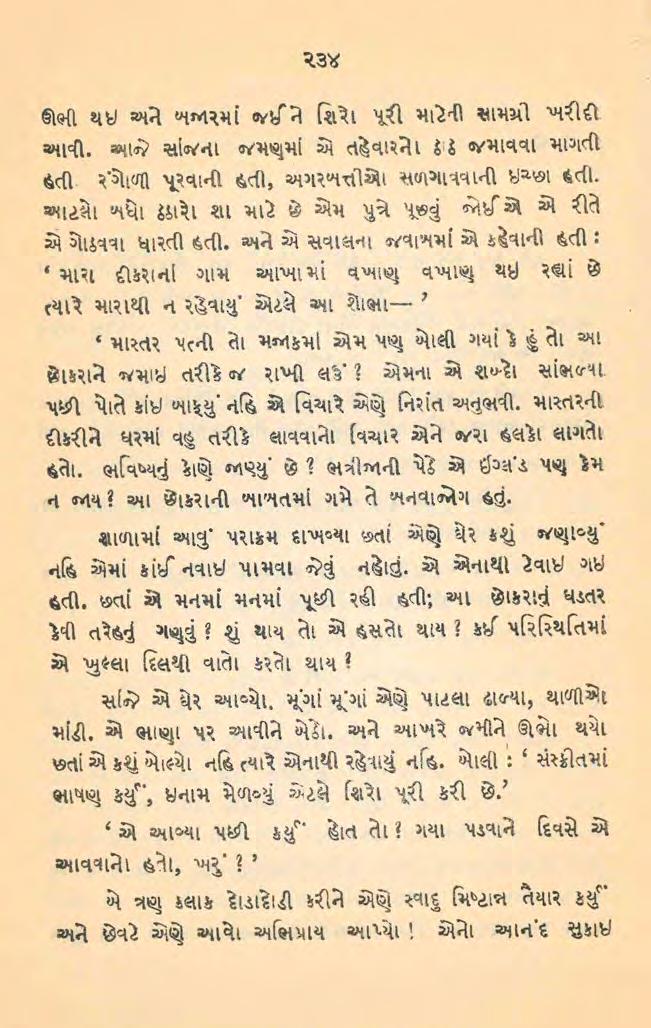 ૨૩૪
ઊભી થઇ અને બજારમાં જઈને શિરો પૂરી માટેની સામગ્રી ખરીદી
આવી. આજે સાંજના જમણમાં એ તહેવારનો ઠઠ જમાવવા માગતી
હતી રંગોળી પૂરવાની હતી, અગરબત્તીઓ સળગાવવાની ઇચ્છા હતી.
આટલો બધો ઠઠારો શા માટે છે એમ પુત્રે પૂછવું જોઈએ એ રીતે
એ ગોઠવવા ધારતી હતી. અને એ સવાલના જવાબમાં એ કહેવાની હતી :
‘ મારા દીકરાનાં ગામ આખામાં વખાણ વખાણ થઇ રહ્યાં છે
ત્યારે મારાથી ન રહેવાયું એટલે આ શોભા— ’
‘ માસ્તર પત્ની તો મજાકમાં એમ પણ બોલી ગયાં કે હું તો આ
છોકરાને જમાઇ તરીકે જ રાખી લઉં ? એમના એ શબ્દો સાંભળ્યા
પછી પોતે કાંઇ બાફયું નહિ એ વિચારે એણે નિરાંત અનુભવી. માસ્તરની
દીકરીને ઘરમાં વહુ તરીકે લાવવાનો વિચાર એને જરા હલકો લાગતો
હતો. ભવિષ્યનું કોણે જાણ્યું છે ? ભત્રીજાની પેઠે એ ઈંગ્લંડ પણ કેમ
ન જાય ? આ છોકરાની બાબતમાં ગમે તે બનવાજોગ હતું.
શાળામાં આવું પરાક્રમ દાખવ્યા છતાં એણે ઘેર કશું જણાવ્યું
નહિ એમાં કાંઈ નવાઇ પામવા જેવું નહોતું. એ એનાથી ટેવાઇ ગઇ
હતી. છતાં એ મનમાં મનમાં પૂછી રહી હતી; આ છોકરાનું ઘડતર
કેવી તરેહનું ગણવું ? શું થાય તો એ હસતો થાય ? કઈ પરિસ્થિતિમાં
એ ખુલ્લા દિલથી વાતો કરતો થાય ?
સાંજે એ ઘેર આવ્યો. મૂંગાં મૂંગાં એણે પાટલા ઢાળ્યા, થાળીઓ
માંડી. એ ભાણા પર આવીને બેઠો. અને આખરે જમીને ઊભો થયો
છતાં એ કશું બોલ્યો નહિ ત્યારે એનાથી રહેવાયું નહિ. બોલી : ‘ સંસ્ક્રીતમાં
ભાષણ કર્યું, ઇનામ મેળવ્યું એટલે શિરો પૂરી કરી છે.’
‘ એ આવ્યા પછી કર્યું હોત તો ? ગયા પડવાને દિવસે એ
આવવાનો હતો, ખરું ? ’
બે ત્રણ કલાક દોડાદોડી કરીને એણે સ્વાદુ મિષ્ટાન્ન તૈયાર કર્યું
અને છેવટે એણે આવો અભિપ્રાય આપ્યો ! એનો આનંદ સુકાઇ